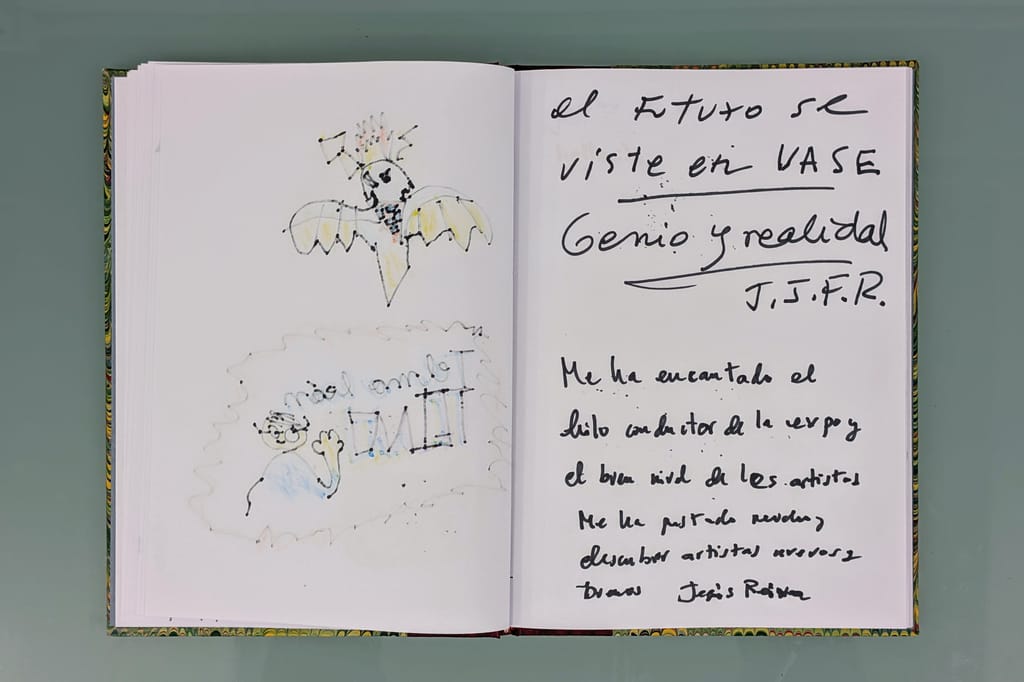 Telmo león
el Futuro se
viste en VASE
Genio y realidad
J.J.F.R.
Me ha encantado el
hilo conductor de la expo y
el buen nivel de los artistas
Me ha gustado mucho y
descubrir artistas nuevos y
buenos Jesús